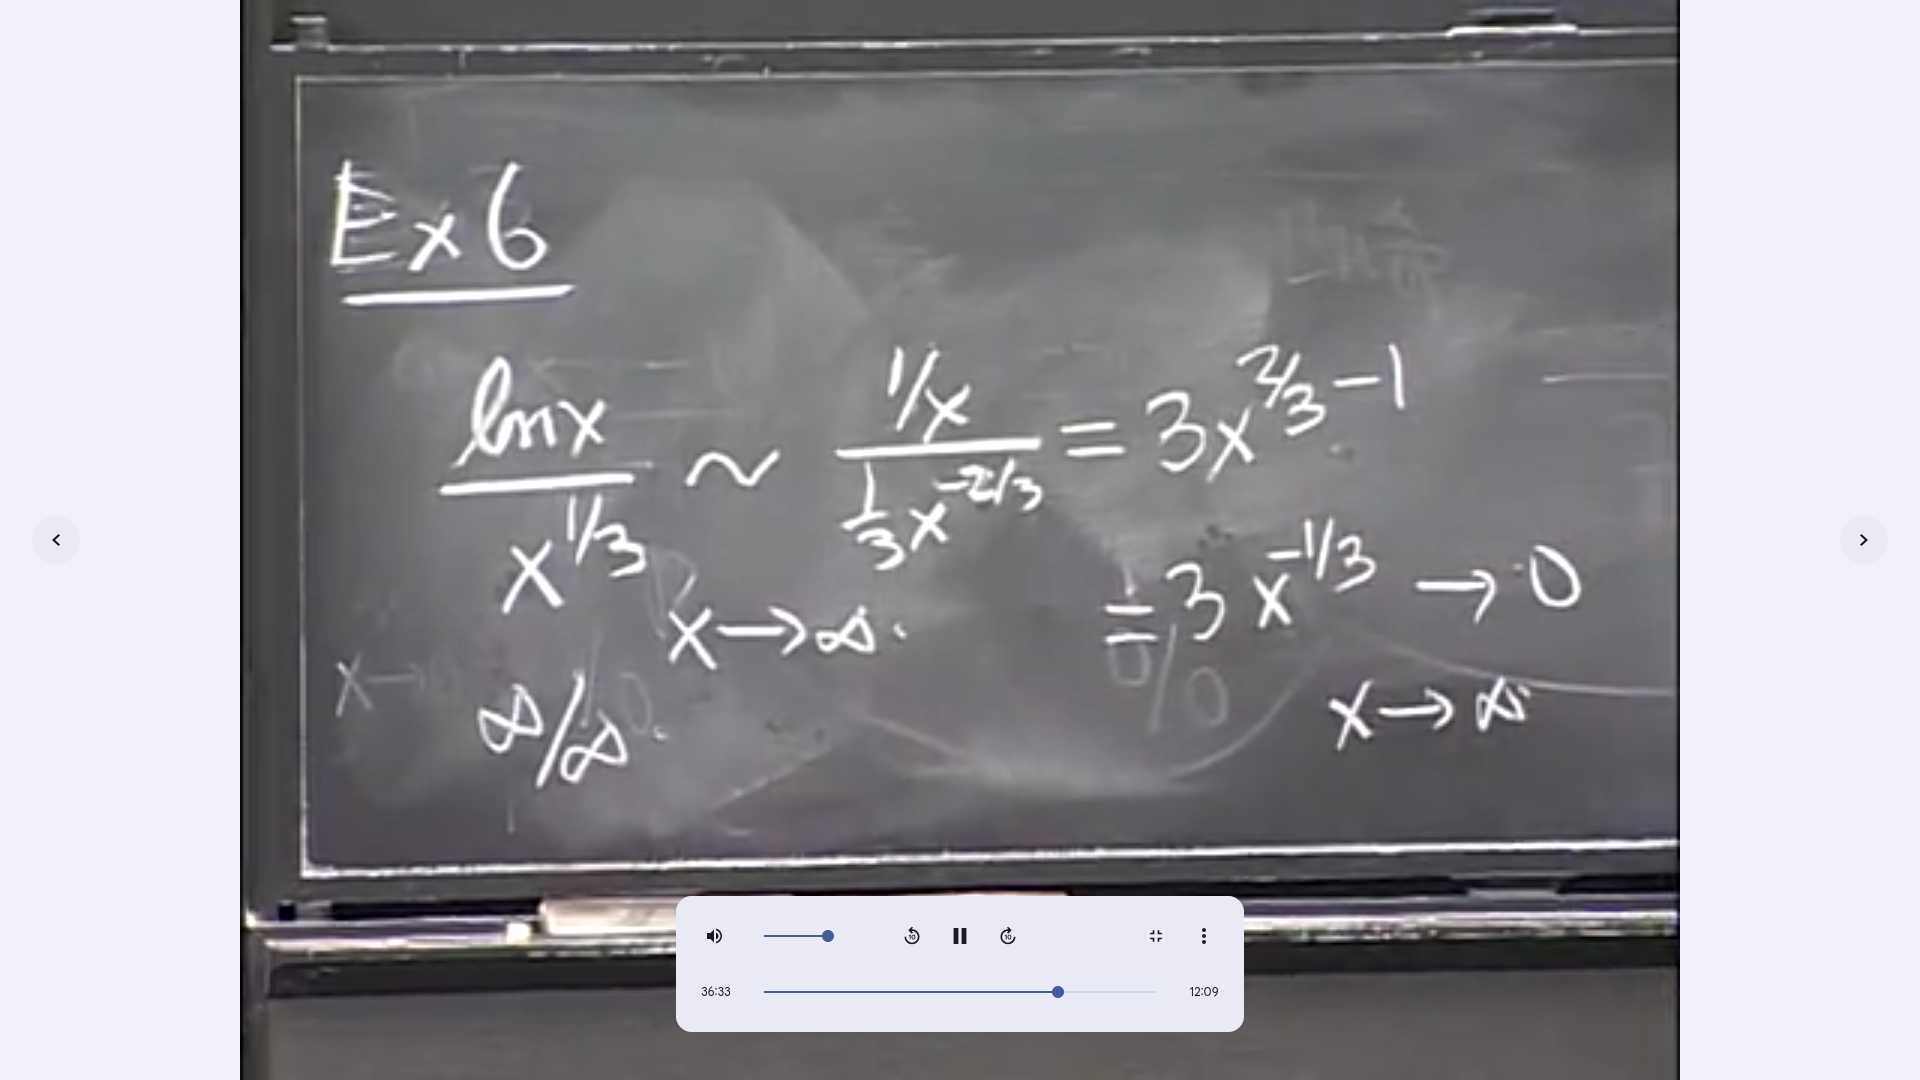 Ex 6
ln x / x^1/3 ~ 1/x / 1/3 x^-2/3 = 3x^2/3 - 1
x → ∞
= 3 x^-1/3 → 0
x → ∞
∞/∞
x →
0/0
10
10
36:33
12:09